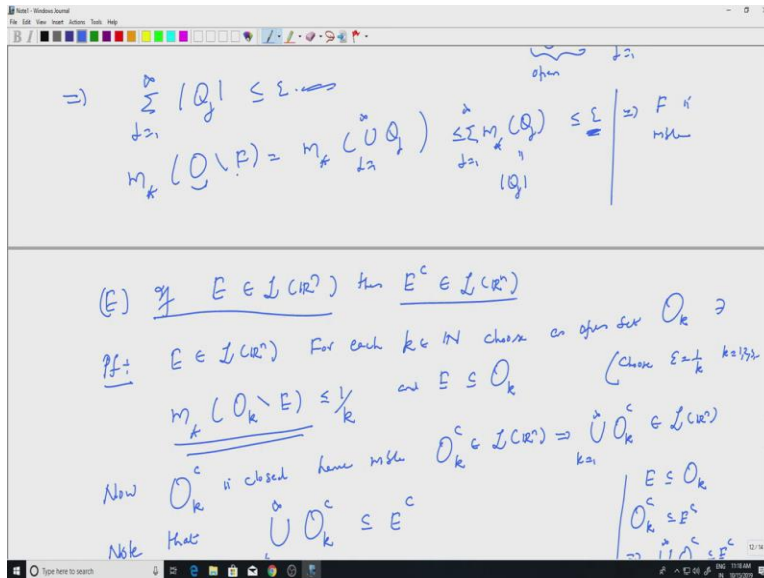 Note1 - Windows Journal
File Edit View Insert Actions Tools Help
open j=1
⇒) ∞ Σ j=1 |Q_j| ≤ ε.
m_* (O \ F) = m_* (∞ ∪ j=1 Q_j) ≤ ∞ Σ j=1 m_* (Q_j) ≤ ε ⇒) F is
mble
|Q_j|
(E) If E ∈ L(ℝⁿ) then E^c ∈ L(ℝⁿ)
Pf: E ∈ L(ℝⁿ) For each k ∈ ℕ choose an open set O_k ∋
m_* (O_k \ E) ≤ 1/k and E ⊆ O_k (choose ε = 1/k k=1,2,3,..
Now O_k^c is closed hence mble O_k^c ∈ L(ℝⁿ) ⇒ ∞ ∪ k=1 O_k^c ∈ L(ℝⁿ)
Note that ∞ ∪ O_k^c ⊆ E^c
E ⊆ O_k
O_k^c ⊆ E^c
⇒) ∞ ∪ O_k^c ⊆ E^c
12/14
Type here to search
ENG 11:18 AM
IN 10/15/2019